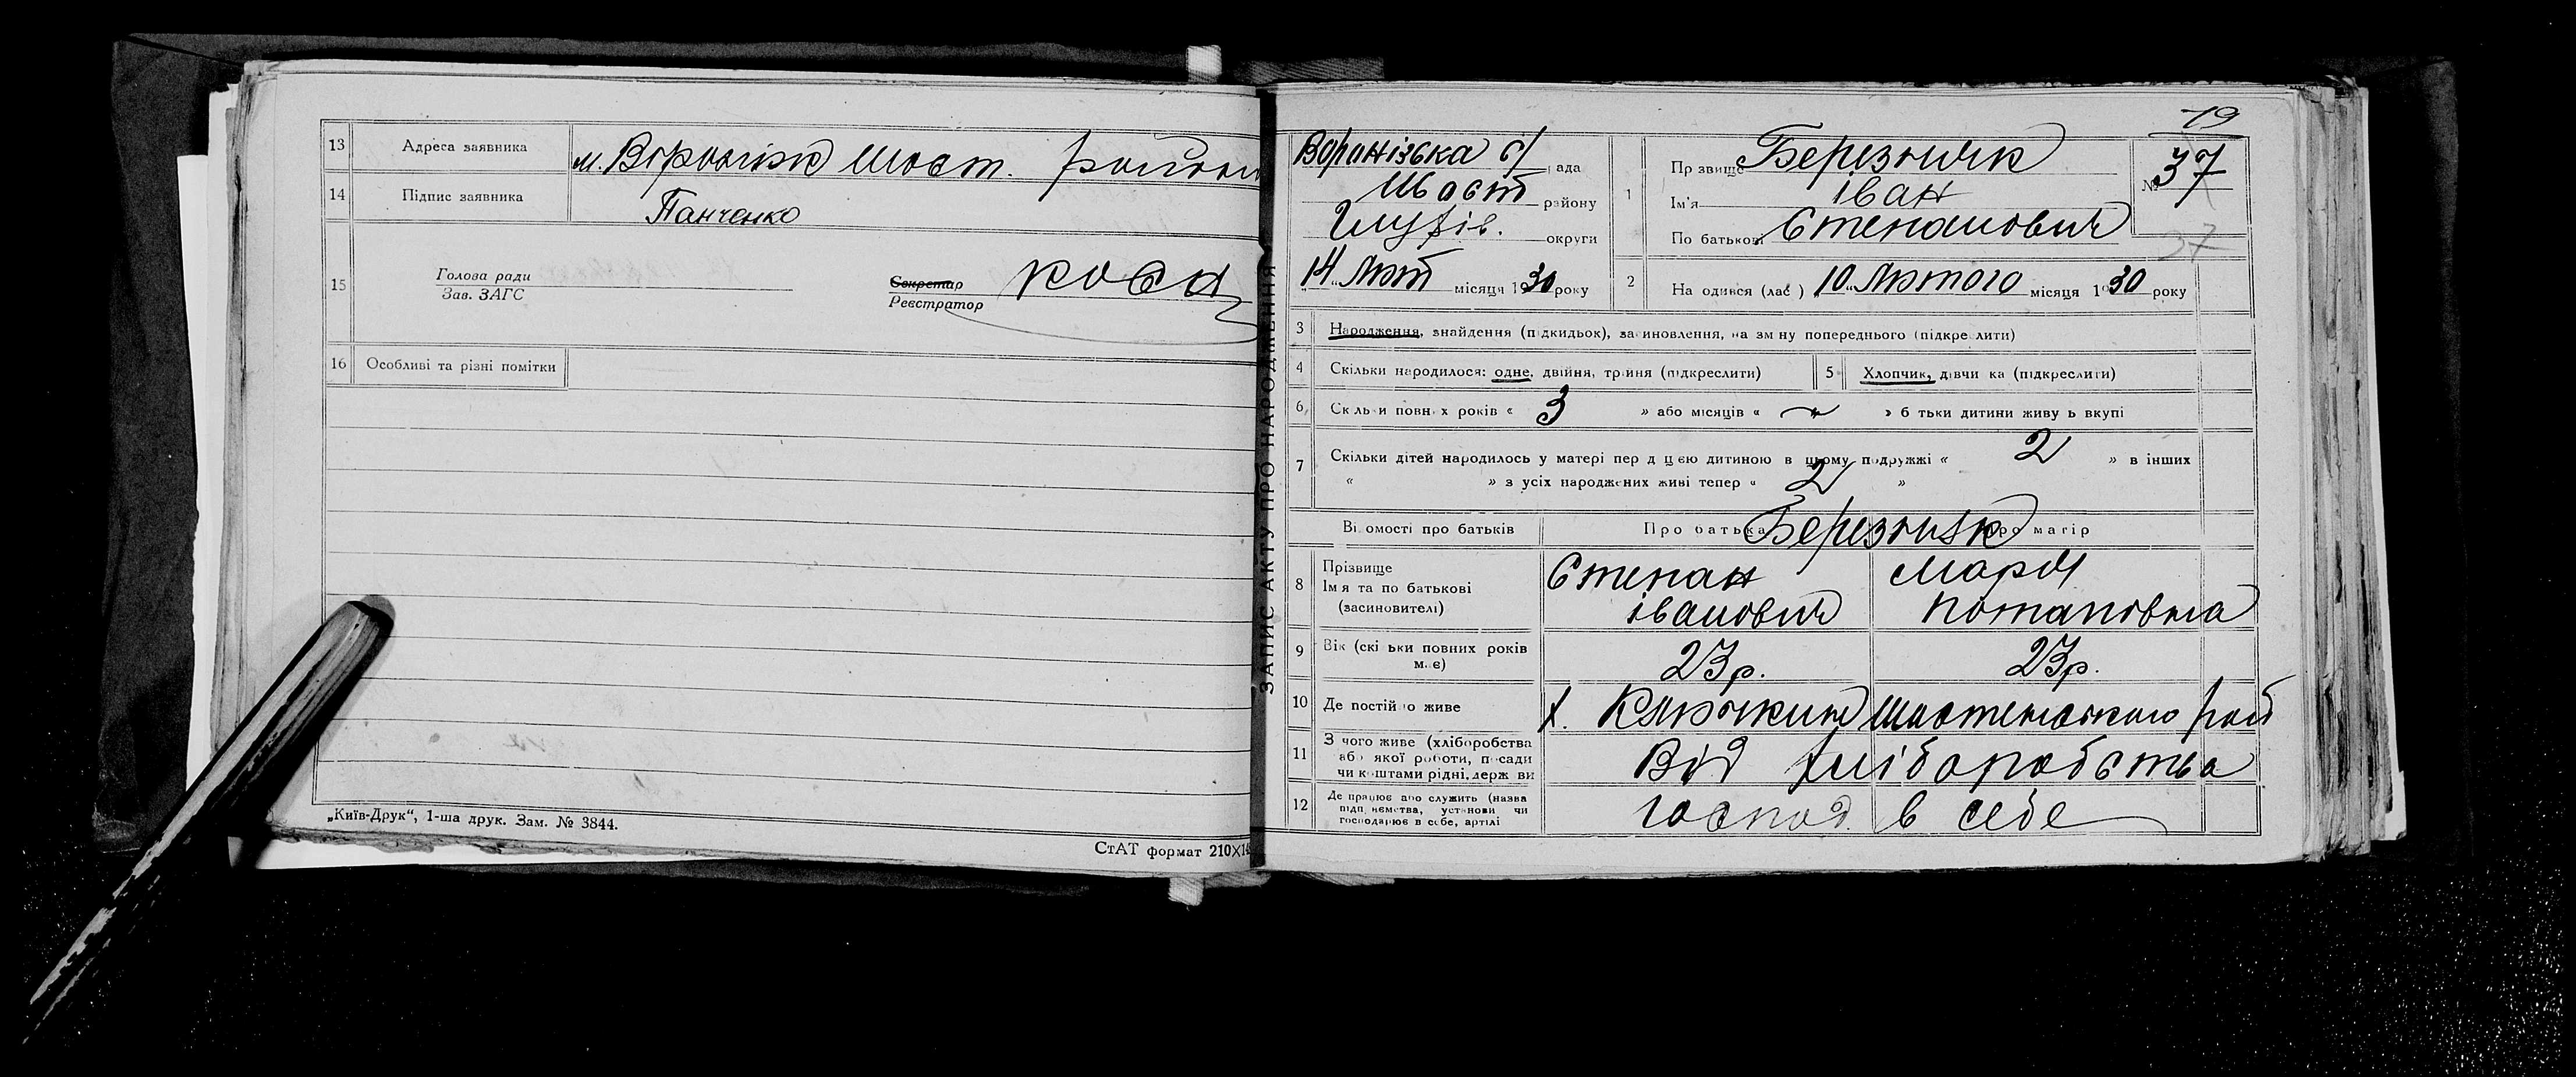 13 Адреса заявника м. Вороніж Шост. район
14 Підпис заявника Панченко
15 Голова ради
Зав. ЗАГС
Секретар
Реєстратор
16 Особливі та різні помітки
„Київ-Друк“, 1-ша друк. Зам. № 3844.
СтАТ формат 210X1
ЗАПИС АКТУ ПРО НАРОДЖЕННЯ
19
Воронізька с/рада
Шост району
Глухів. округи
14 Лют місяця 1930 року
1 Прізвище Березняк
Ім'я Іван
По батькові Степанович
№ 37
37
2 Народився (лась) „10„ Лютого місяця 1930 року
3 Народження, знайдення (підкидьок), засиновлення, на зміну попереднього (підкреслити)
4 Скільки народилося: одне, двійня, трійня (підкреслити) 5 Хлопчик, дівчинка (підкреслити)
6 Скільки повних років « 3 » або місяців « » батьки дитини живуть вкупі
7 Скільки дітей народилось у матері перед цією дитиною в цьому подружжі « 2 » в інших
« » з усіх народжених живі тепер « 2 »
Відомості про батьків Про батька Про матір
Березняк
8 Прізвище
Ім'я та по батькові
(засиновителі)
Степан Марія
Іванович Потаповна
9 Вік (скільки повних років має) 23р. 23р.
10 Де постійно живе х. Шостенського рай
11 З чого живе (хліборобства
або якої роботи, посади
чи коштами рідні, держави
Від хліборобства
12 Де працює або служить (назва
підприємства, установи чи
господарює в себе, артілі
господ. в себе